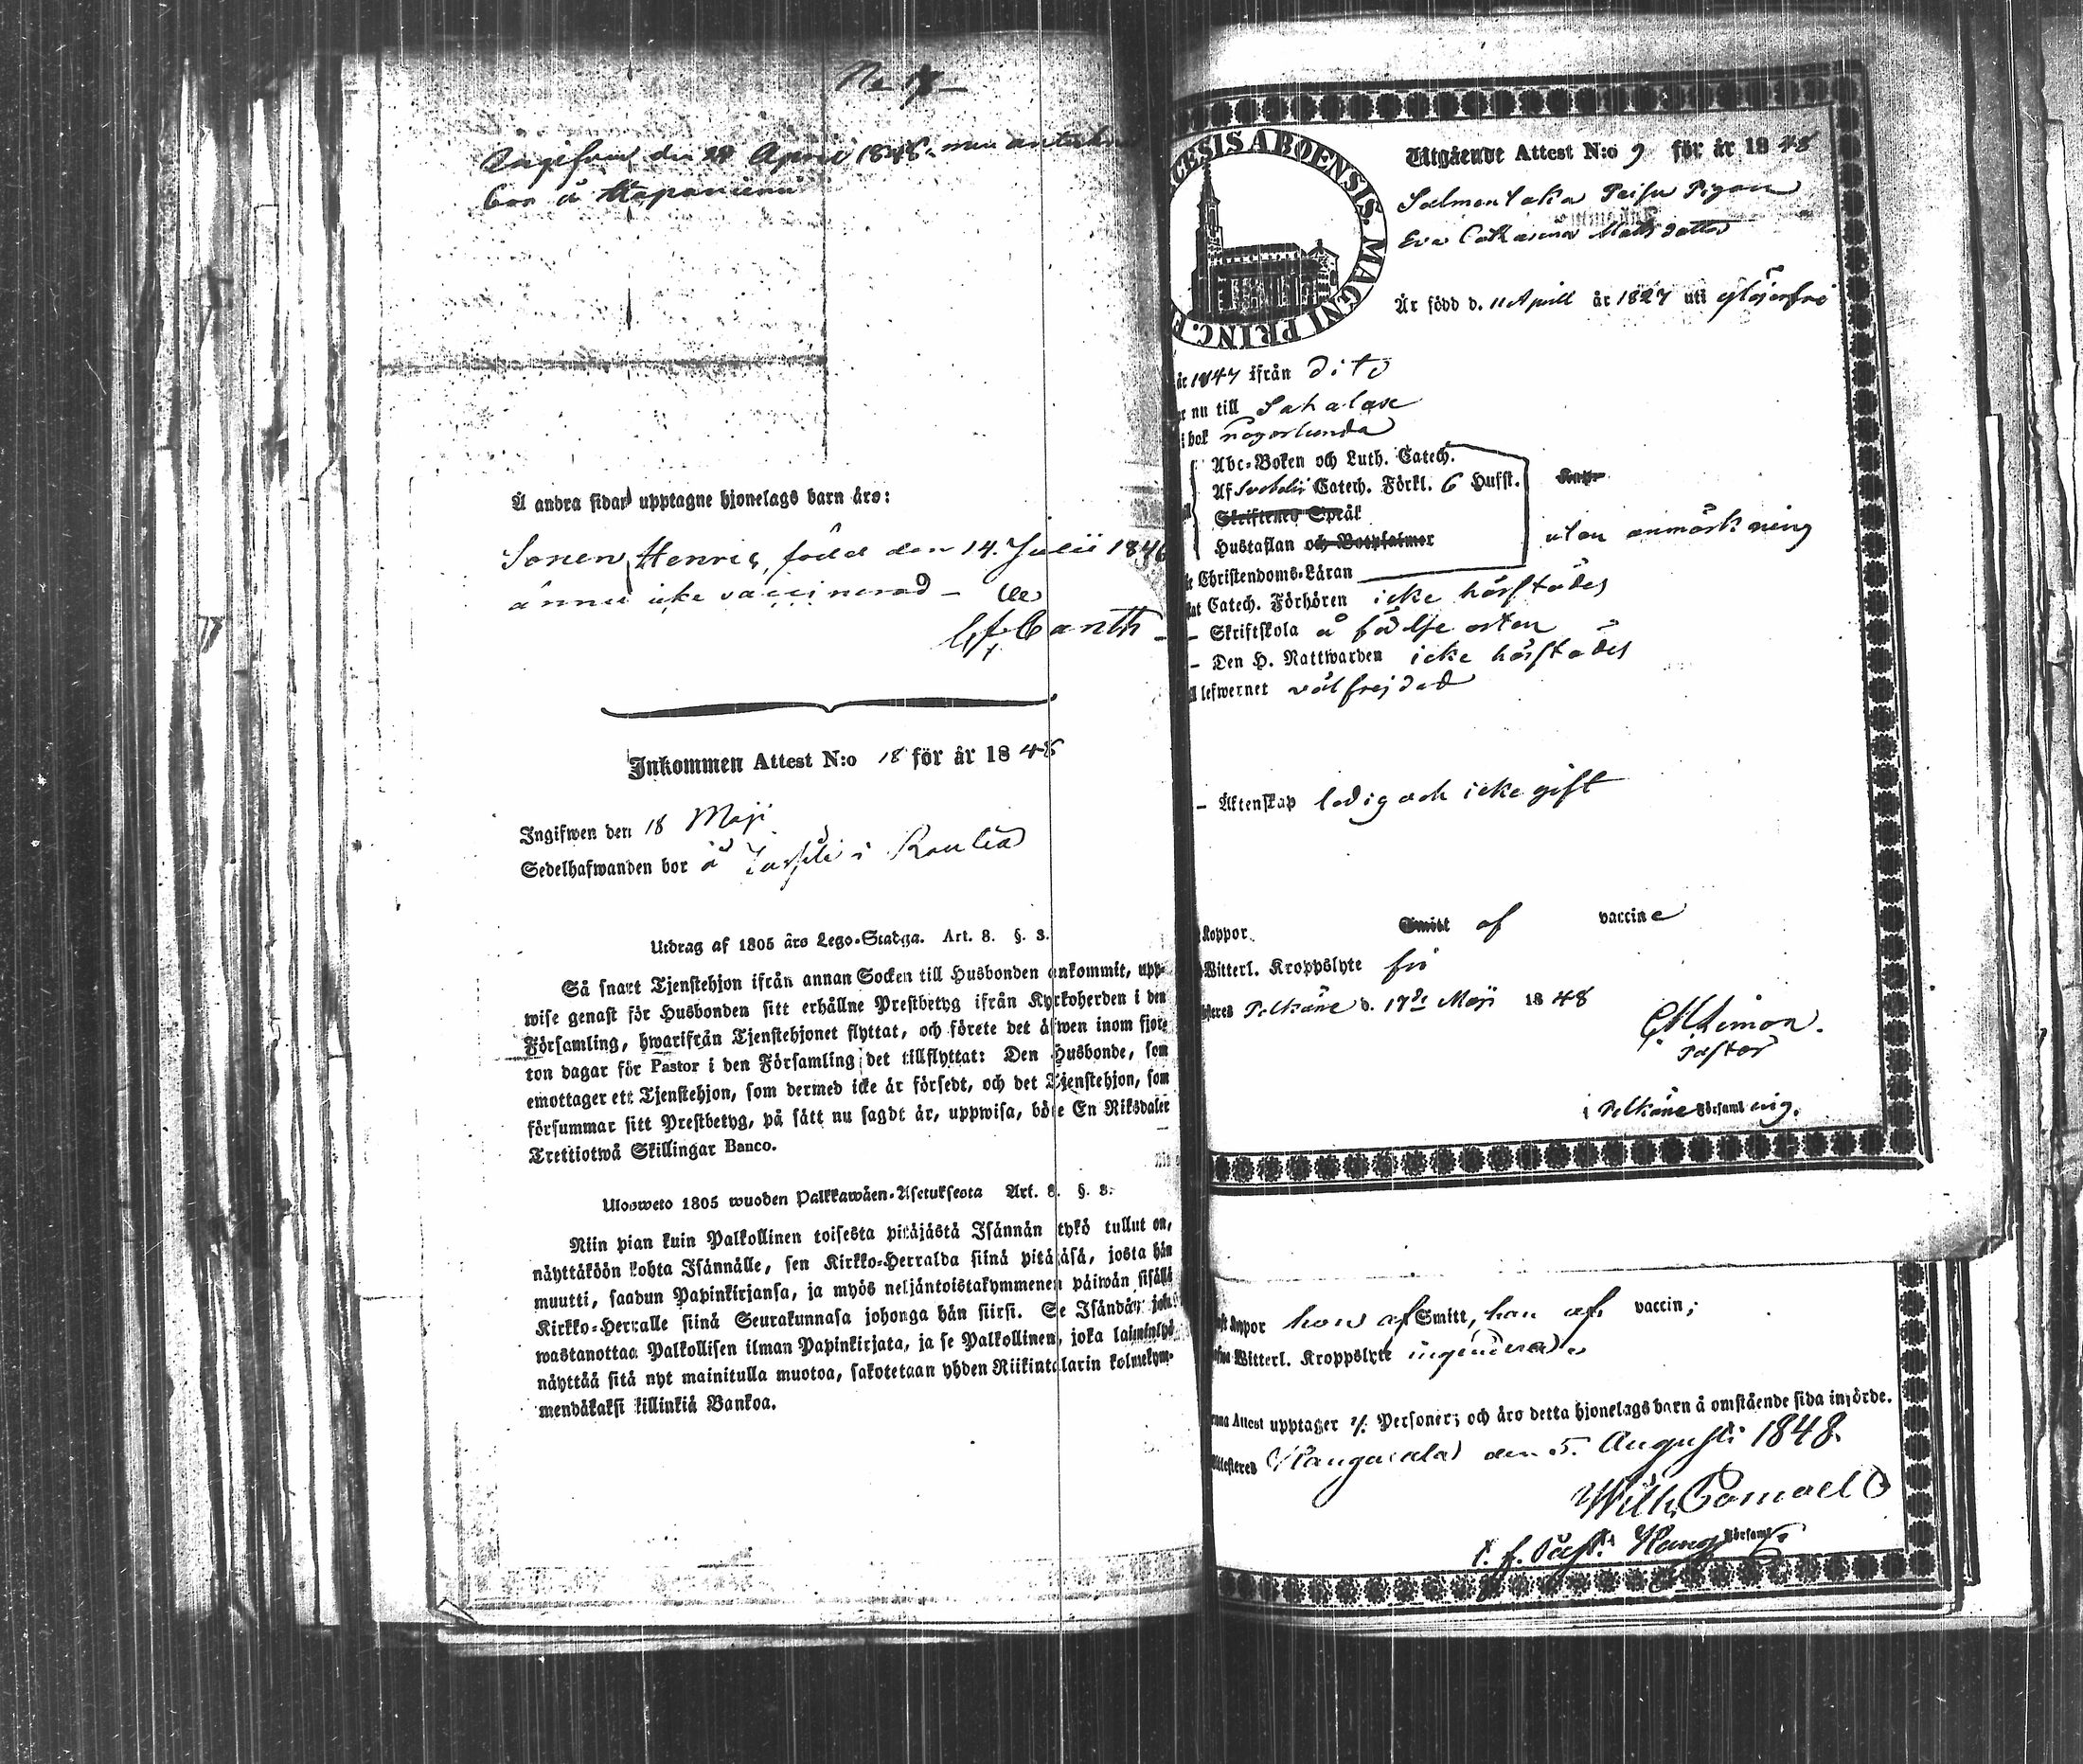 No 17
Ingifven den 28 April 1848.
boo å Haponiemi
Å andra sidan upptagne hjonelags barn äro:
Sonen Henric, född den 14. Julii 1846
ännu icke vaccinerad
Inkommen Attest N:o 18 för år 1848
Ingifwen den 18 Maji
Sedelhafwanden bor å i Rautia
Utdrag af 1805 års Lego-Stadga. Art. 8. §. 3.
Så snart Tjenstehjon ifrån annan Socken till Husbonden ankommit, upp-
wise genast för Husbonden sitt erhållne Prestbetyg ifrån Kyrkoherden i den
Församling, hwarifrån Tjenstehjonet flyttat, och förete det äfwen inom fjor-
ton dagar för Pastor i den Församling det tillflyttat: Den Husbonde, som
emottager ett Tjenstehjon, som dermed icke är försedt, och det Tjenstehjon, som
försummar sitt Prestbetyg, på sätt nu sagdt är, uppwisa, böte En Riksdaler
Trettiotwå Skillingar Banco.
Ulosweto 1805 wuoden Palkkawäen-Asetuksesta Art. 8. §. 3.
Niin pian kuin Palkollinen toisesta pitäjästä Isännän tykö tullut on,
näyttäköön kohta Isännälle, sen Kirkko-Herralda siinä pitäjäsä, josta hän
muutti, saadun Papinkirjansa, ja myös neljäntoistakymmenen päiwän sisällä
Kirkko-Herralle siinä Seurakunnasa johonga hän siirsi. Se Isändä, joka
wastanottaa Palkollisen ilman Papinkirjata, ja se Palkollinen, joka laiminlyö
näyttää sitä nyt mainitulla muotoa, sakotetaan yhden Riikintalarin kolmekym-
mendäkaksi killinkiä Bankoa.
CESIS ABOENSIS. MAGNI PRINC. F
Utgående Attest N:o 9 för år 1848
Salmentaka Peisu Pigan
Eva Catharina Matts dotter
Är född d. 11 April år 1827 uti
år 1847 ifrån dito
nu till Sahalax
i bok någorlunda
Abc-Boken och Luth. Catech.
Af Svebelii Catech. Förkl. 6 Hufst.
Skriftenes Språk
Hustaflan och Botpsalmer
utan anmärkning
Christendoms-Läran
Catech. Förhören icke härstädes
- Skriftskola å födelse orten
- Den H. Nattwarden icke härstädes
lefwernet välfrejdad
- Äktenskap ledig och icke gift
Koppor Smitt af vaccine
Witterl. Kroppslyte fri
Pelkäne d. 17de Maji 1848
Pastor
i Pelkäne Församl ing.
hon af Smitt, han af vaccin;
Witterl. Kroppslyte ingendera
Attest upptager 3/. Personer; och äro detta hjonelags barn å omstående sida införde.
Attesteres Kangasala den 5. Augusti 1848.
t. f. Past. i Kang. Församl